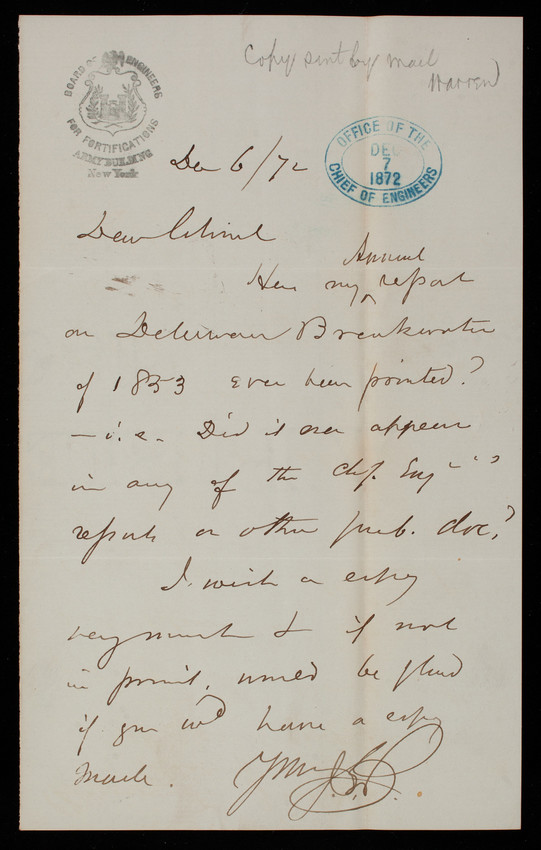 Copy sent by mail
Warren
BOARD OF ENGINEERS
FOR FORTIFICATIONS
ARMY BUILDING
New York
OFFICE OF THE
DEC
7
1872
CHIEF OF ENGINEERS
Dec 6/72
Dear Colonel
Annual
Has my ^ report
on Delaware Breakwater
of 1853 ever been printed?
— i.e. Did it ever appear
in any of the Chf. Eng
reports or other pub. doc.?
I wish a copy
very much & if not
in print, would be glad
if you wd have a copy
made.
Yours